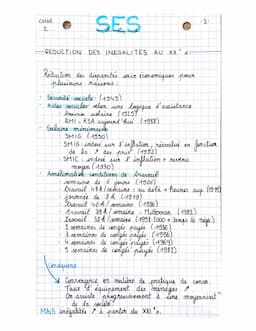 CHAP. 2
SES
3
RÉDUCTION DES INÉGALITÉS AU XX° s.
Réduction des disparités socio-économiques pour
plusieurs raisons :
- Sécurité sociale (1945)
- Aides sociales selon une logique d'assistance
- bourse scolaire (1925)
- RMI → RSA aujourd'hui (1988)
- Salaire minimum
- SMIG (1950)
- SMIG indexé sur l'inflation, réévalué en fonction
de la ↗ des prix (1952)
- SMIC : indexé sur l'inflation + revenu
moyen (1970)
- Amélioration conditions de travail
- semaine de 6 jours (1906)
- travail 48h/semaine : au delà = heures sup. (1919)
- journée de 8h (1919)
- travail 40h/semaine (1936)
- travail 39h/semaine - Mitterrand (1982)
- travail 35h/semaine (1998/2000) + temps de repos
- 2 semaines de congés payés (1936)
- 3 semaines de congés payés (1956)
- 4 semaines de congés payés (1969)
- 5 semaines de congés payés (1982)
Conséquences
Convergence en matière de pratique de conso.
Taux d'équipement des ménages ↗
On assiste progressivement à "une moyennisat°
de la société"
MAIS inégalités ↗ à partir du XXI° s.